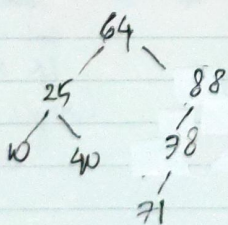 64
25 88
10 40 78
71